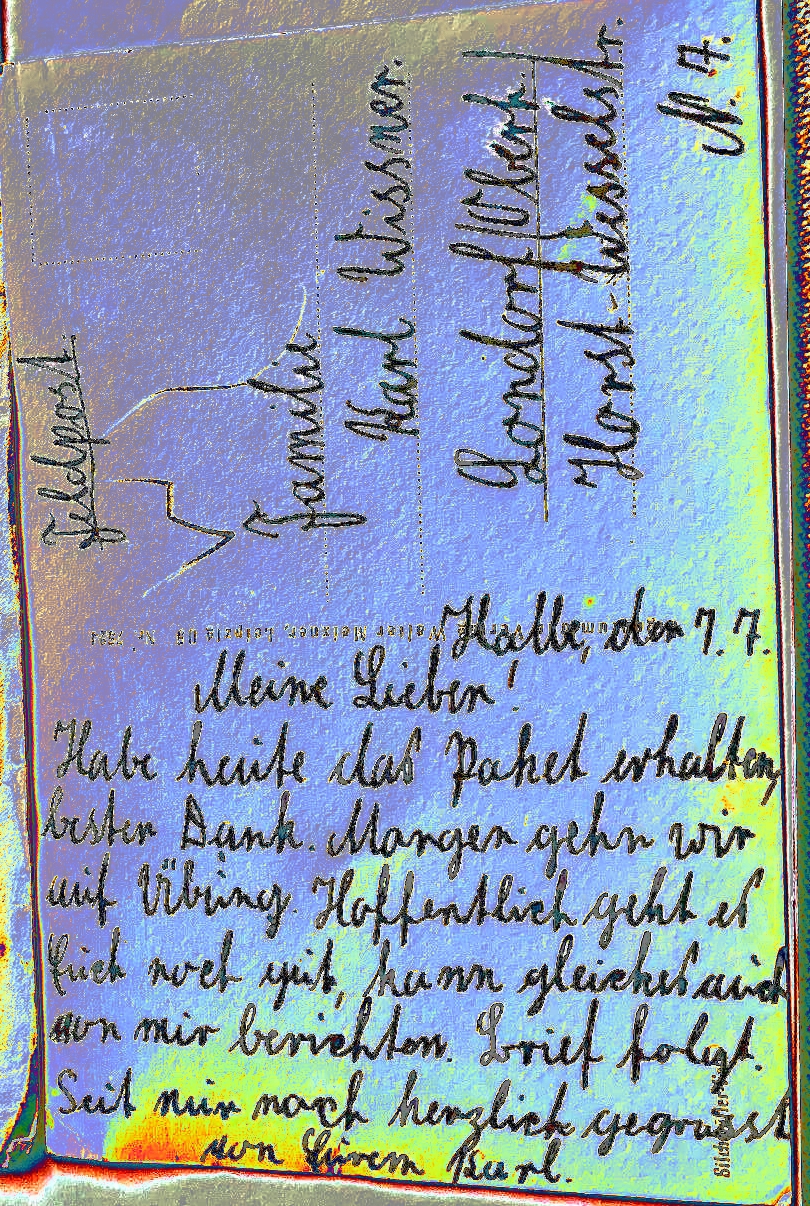 Feldpost.
Familie
Karl Wissner.
Londorf/Oberh.
Horst-Wesselstr.
N. 7.
Walter Meixner, Leipzig
Halle, den 7. 7.
Meine Lieben!
Habe heute das Paket erhalten,
besten Dank. Morgen gehn wir
auf Übung. Hoffentlich geht es
Euch noch gut, kann gleiches auch
von mir berichten. Brief folgt.
Seit nur noch herzlich gegrüsst
von Eurem Karl.